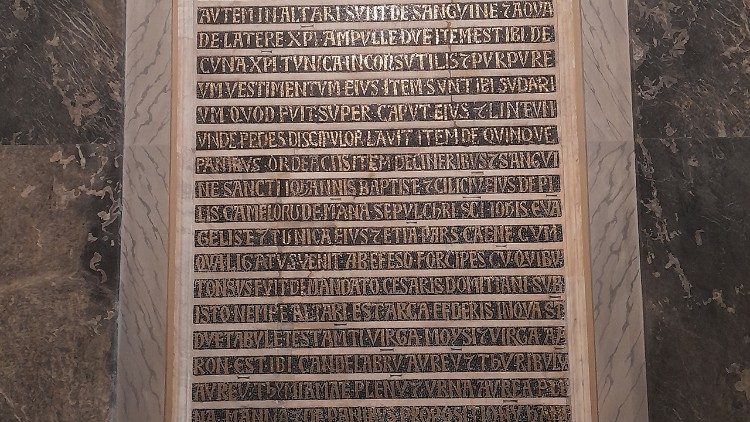 AVTEM IN ALTARI SVNT DE SANGVINE ⁊ AQVA
DE LATERE XPI AMPVLLE DVE ITEM EST IBI DE
CVNA XPI TVNICA INCONSVTILIS ⁊ PVRPVRE
VM VESTIMENTVM EIVS ITEM SVNT IBI SVDARI
VM QVOD FVIT SVPER CAPVT EIVS ⁊ LINTEVM
VNDE PEDES DISCIPVLOR LAVIT ITEM DE QVINQVE
PANIBVS ORDEACIIS ITEM DE CINERIBVS ⁊ SANGVI
NE SANCTI IOHANNIS BAPTISTE ⁊ CILICIV EIVS DE PI
LIS CAMELORV DE MANA SEPVLCHRI SCI IOHIS EVA
GELISTE ⁊ TVNICA EIVS ⁊ ETIA PARS CATENE CVM
QVA LIGATVS VENIT AB EFESO FORCIPES CV QVIBV
TONSVS FVIT DE MANDATO CESARIS DOMITIANI SVB
ISTO NEMPE ALTARI EST ARCA FEDERIS IN QVA ST
DVE TABVLE TESTAMTI VIRGA MOYSI ⁊ VIRGA AA
RON EST IBI CANDELABRV AVREV ⁊ THVRIBVLV
AVREV THYMIAMATE PLENV ⁊ VRNA AVREA PLE
NA MANNA ⁊ DE PANIB